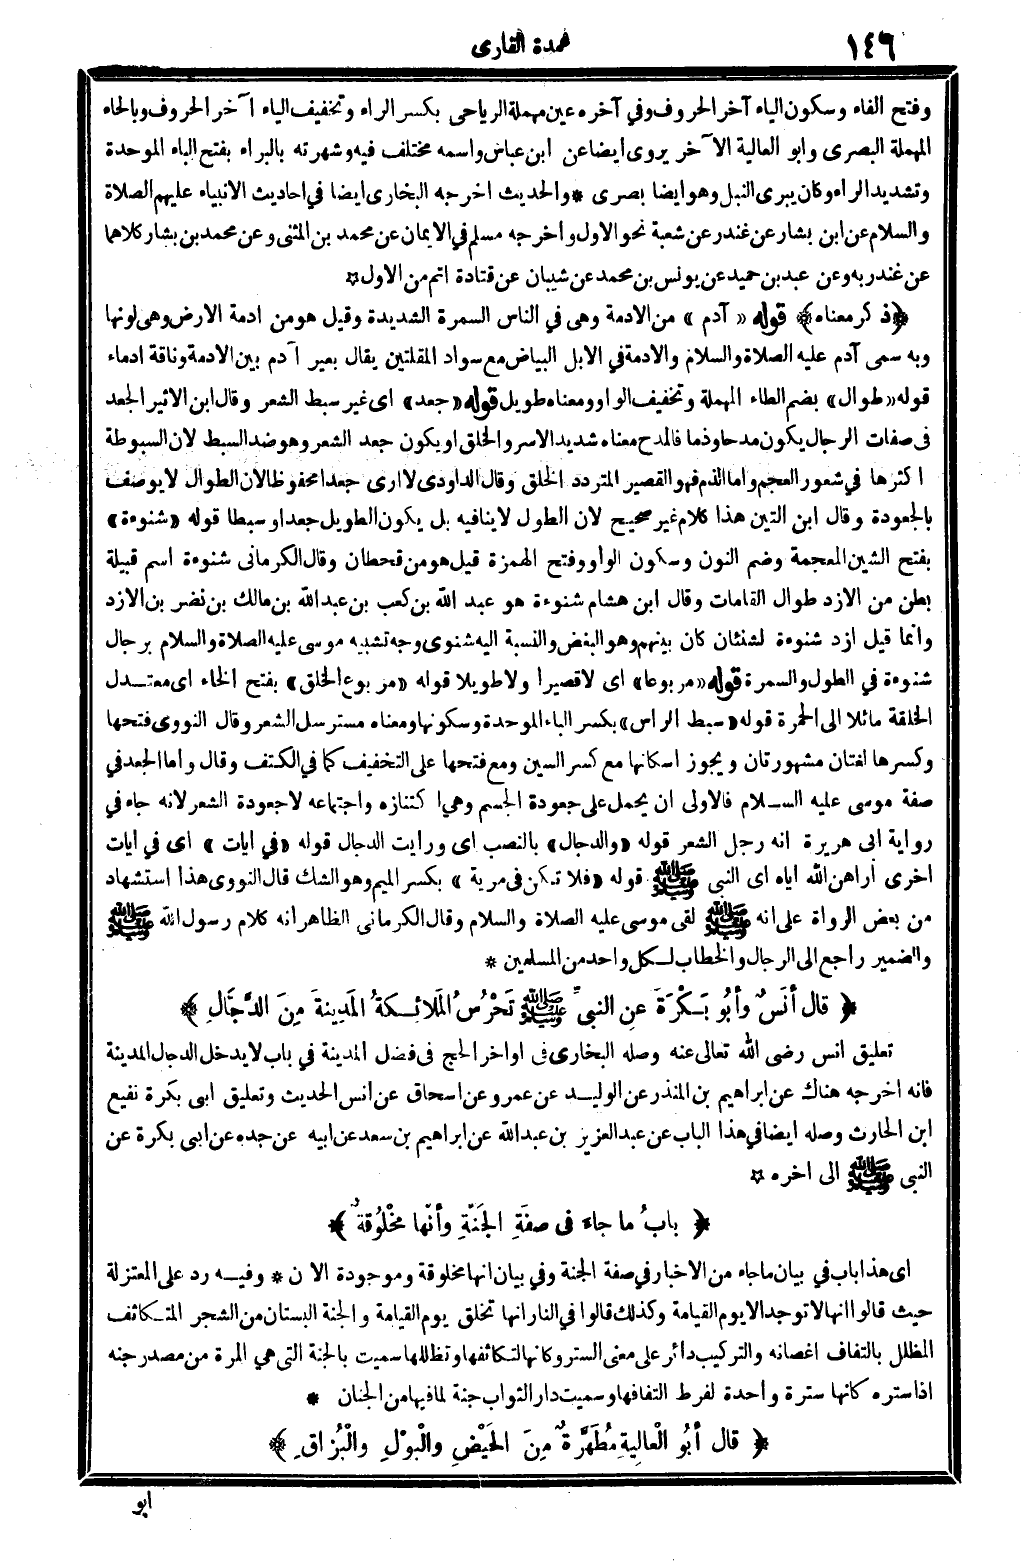 ١٤٦
عمدة القارى
وفتح الفاء وسكون الياء آخر الحروف وفي آخره عين مهملة الرياحى بكسر الراء وتخفيف الياء آخر الحروف وبالحاء
المهملة البصرى وابو العالية الآخر يروى أيضا عن ابن عباس واسمه مختلف فيه وشهرته بالبراء بفتح الباء الموحدة
وتشديد الراء وكان يبرى النبل وهو ايضا بصرى * والحديث اخرجه البخارى ايضا في احاديث الانبياء عليهم الصلاة
والسلام عن ابن بشار عن غندر عن شعبة نحو الاول وأخرجه مسلم في الايمان عن محمد بن المثنى وعن محمد بن بشار كلاهما
عن غندر به وعن عبد بن حميد عن يونس بن محمد عن شيبان عن قتادة اتم من الاول *
﴿ذكر معناه﴾ قوله «آدم» من الادمة وهى في الناس السمرة الشديدة وقيل هو من ادمة الارض وهى لونها
وبه سمى آدم عليه الصلاة والسلام والادمة في الابل البياض مع سواد المقلتين يقال بعير آدم بين الادمة وناقة ادماء
قوله «طوال» بضم الطاء المهملة وتخفيف الواو ومعناه طويل قوله «جعد» اى غير سبط الشعر وقال ابن الاثير الجعد
فى صفات الرجال يكون مدحا وذما فالمدح معناه شديد الاسر والخلق او يكون جعد الشعر وهو ضد السبط لان السبوطة
اكثرها في شعور العجم واما الذم فهو القصير المتردد الخلق وقال الداودى لا ارى جعدا محفوظا لان الطوال لا يوصف
بالجعودة وقال ابن التين هذا كلام غير صحيح لان الطول لا ينافيه بل يكون الطويل جعدا وسبطا قوله «شنوءة»
بفتح الشين المعجمة وضم النون وسكون الواو وفتح الهمزة قيل هو من قحطان وقال الكرمانى شنوءة اسم قبيلة
بطن من الازد طوال القامات وقال ابن هشام شنوءة هو عبد الله بن كعب بن عبد الله بن مالك بن نضر بن الازد
وانما قيل ازد شنوءة لشنئان كان بينهم وهو البغض والنسبة اليه شنوى وجه تشبيه موسى عليه الصلاة والسلام برجال
شنوءة في الطول والسمرة قوله «مربوعا» اى لا قصيرا ولا طويلا قوله «مربوع الخلق» بفتح الخاء اى معتدل
الخلقة مائلا الى الحمرة قوله «سبط الراس» بكسر الباء الموحدة وسكونها ومعناه مسترسل الشعر وقال النووى فتحها
وكسرها لغتان مشهورتان ويجوز اسكانها مع كسر السين ومع فتحها على التخفيف كما في الكتف وقال واما الجعد في
صفة موسى عليه السلام فالاولى ان يحمل على جعودة الجسم وهي اكتنازه واجتماعه لا جعودة الشعر لانه جاء في
رواية ابى هريرة انه رجل الشعر قوله «والدجال» بالنصب اى ورايت الدجال قوله «في ايات» اى في ايات
اخرى اراهن الله اياه اى النبى ﷺ قوله «فلا تكن فى مرية» بكسر الميم وهو الشك قال النووى هذا استشهاد
من بعض الرواة على انه ﷺ لقى موسى عليه الصلاة والسلام وقال الكرمانى الظاهر انه كلام رسول الله ﷺ
والضمير راجع الى الرجال والخطاب لكل واحد من المسلمين *
﴿ قال أَنَسٌ وأَبُو بَكْرَةَ عنِ النبيِّ ﷺ تَحْرُسُ المَلائِكَةُ المَدِينَةَ مِنَ الدَّجَّالِ ﴾
تعليق انس رضى الله تعالى عنه وصله البخارى فى اواخر الحج فى فضل المدينة في باب لا يدخل الدجال المدينة
فانه اخرجه هناك عن ابراهيم بن المنذر عن الوليد عن عمرو عن اسحاق عن انس الحديث وتعليق ابى بكرة نفيع
ابن الحارث وصله ايضا في هذا الباب عن عبد العزيز بن عبد الله عن ابراهيم بن سعد عن ابيه عن جده عن ابى بكرة عن
النبى ﷺ الى اخره *
﴿ بابُ ما جاءَ فى صفَةِ الجَنَّةِ وأنَّها مَخْلُوقَةٌ ﴾
اى هذا باب في بيان ما جاء من الاخبار في صفة الجنة وفي بيان انها مخلوقة وموجودة الان * وفيه رد على المعتزلة
حيث قالوا انها لا توجد الا يوم القيامة وكذلك قالوا في النار انها تخلق يوم القيامة والجنة البستان من الشجر المتكاثف
المظلل بالتفاف اغصانه والتركيب دائر على معنى الستر وكانها لتكاثفها وتظللها سميت بالجنة التى هي المرة من مصدر جنه
اذا ستره كانها سترة واحدة لفرط التفافها وسميت دار الثواب جنة لما فيها من الجنان *
﴿ قال أَبُو الْعالِيةِ مُطَهَّرَةٌ مِنَ الحَيْضِ والْبَوْلِ والْبُزَاقِ ﴾
ابو